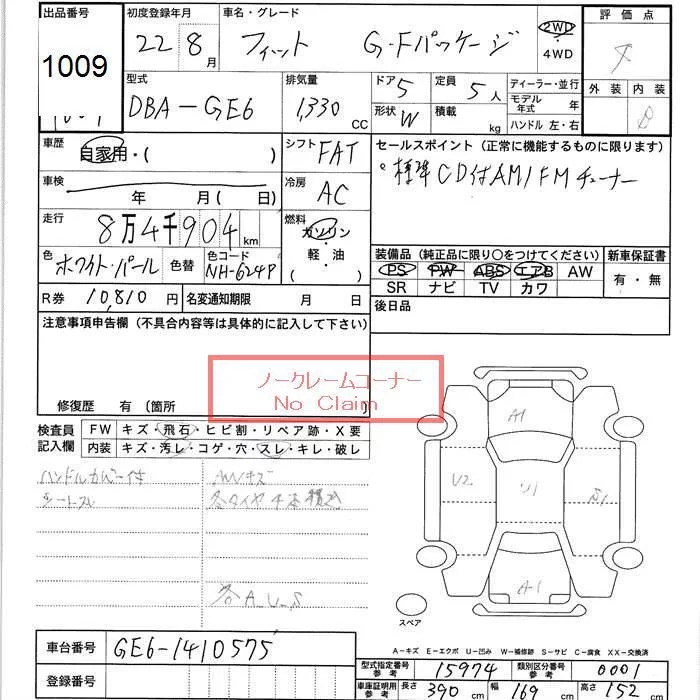 出品番号 初度登録年月 車名・グレード 評価点
1009 22 8月 フィット G・Fパッケージ 2WD・4WD
外装 内装
B
型式 排気量 ドア 5 定員 5人 ディーラー・並行
DBA-GE6 1,330 CC 形状 W 積載 kg モデル年式 年
ハンドル 左・右
車歴 自家用・( ) シフト FAT セールスポイント (正常に機能するものに限ります)
標準CD付AM/FMチューナー
車検 年 月(日) 冷房 AC
走行 8万4千904km 燃料 ガソリン・軽・油 ( )
装備品 (純正品に限り〇をつけてください) 新車保証書
PS PW ABS エアB AW 有・無
SR ナビ TV カワ
色 ホワイト・パール 色替 色コード NH-624P
R券 10,810円 名変通知期限 月 日 後日品
注意事項申告欄 (不具合内容等は具体的に記入して下さい)
ノークレームコーナー
No Claim
修復歴 有 〔箇所 〕
検査員記入欄 FW キズ・飛石・ヒビ割・リペア跡・X要
内装 キズ・汚レ・コゲ・穴・スレ・キレ・破レ
ハンドルカバー付 AWキズ
シートスレ 冬タイヤ4本積込
各A、U、S
A1
U2 U1 S1
A-1
スペア
A-キズ E-エクボ U-凹み W-補修跡 S-サビ C-腐食 XX-交換済
車台番号 GE6-1410575
登録番号
型式指定番号 参考 15974 類別区分番号 参考 0001
車庫証明用 参考 長さ 390cm 幅 169cm 高さ 152cm